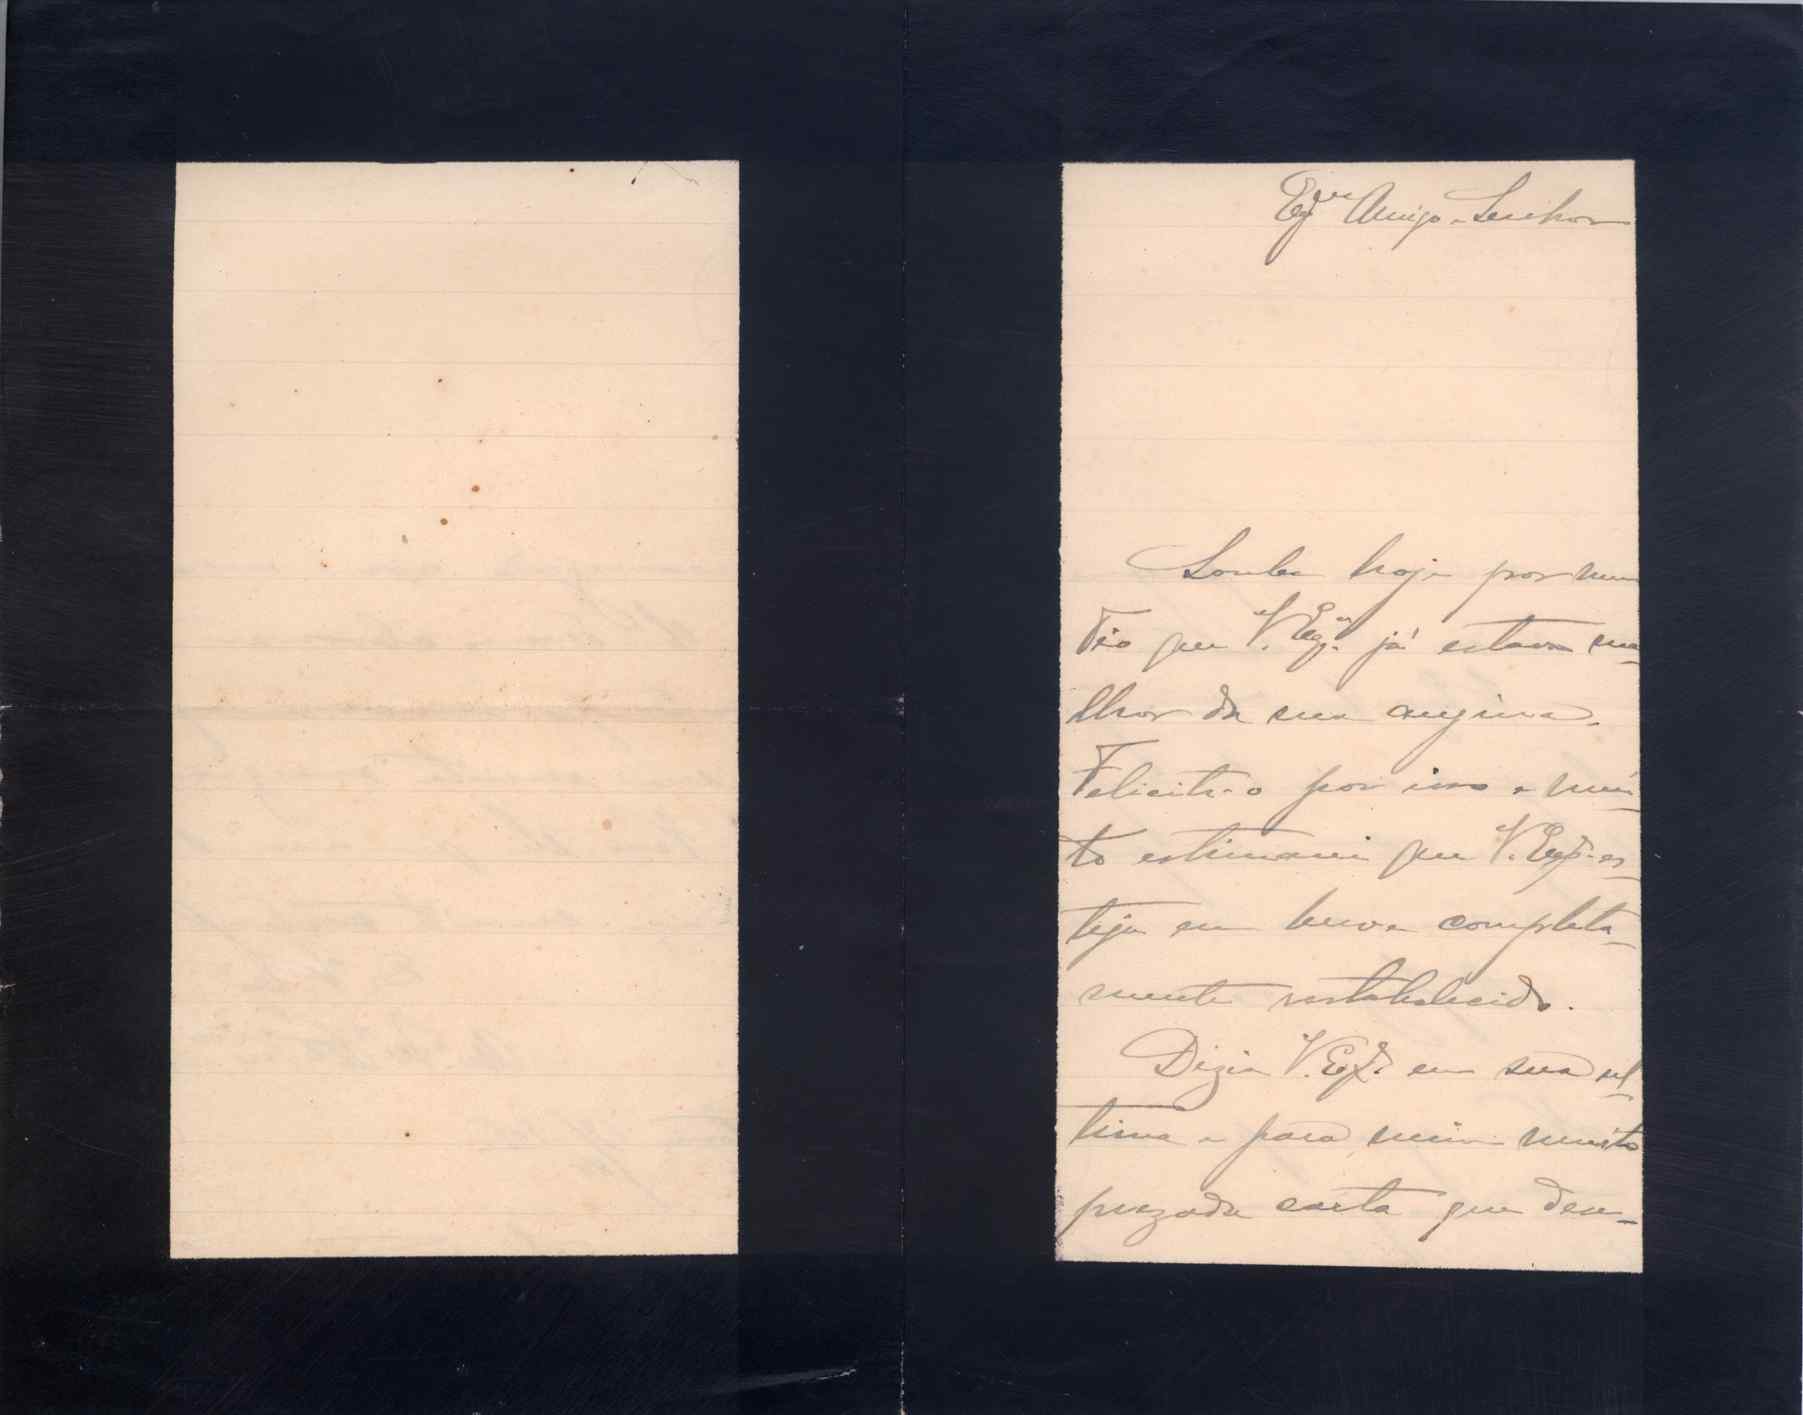 Exmo Amigo e Senhor
Soube hoje por meu
Tio que V. Exa. já estava me-
lhor da sua angina.
Felicito-o por isso e mui-
to estimarei que V. Exa. es-
teja em breve completa-
mente restabelecido.
Dizia V. Exa. em sua ul-
tima e para mim muito
prezada carta que den-